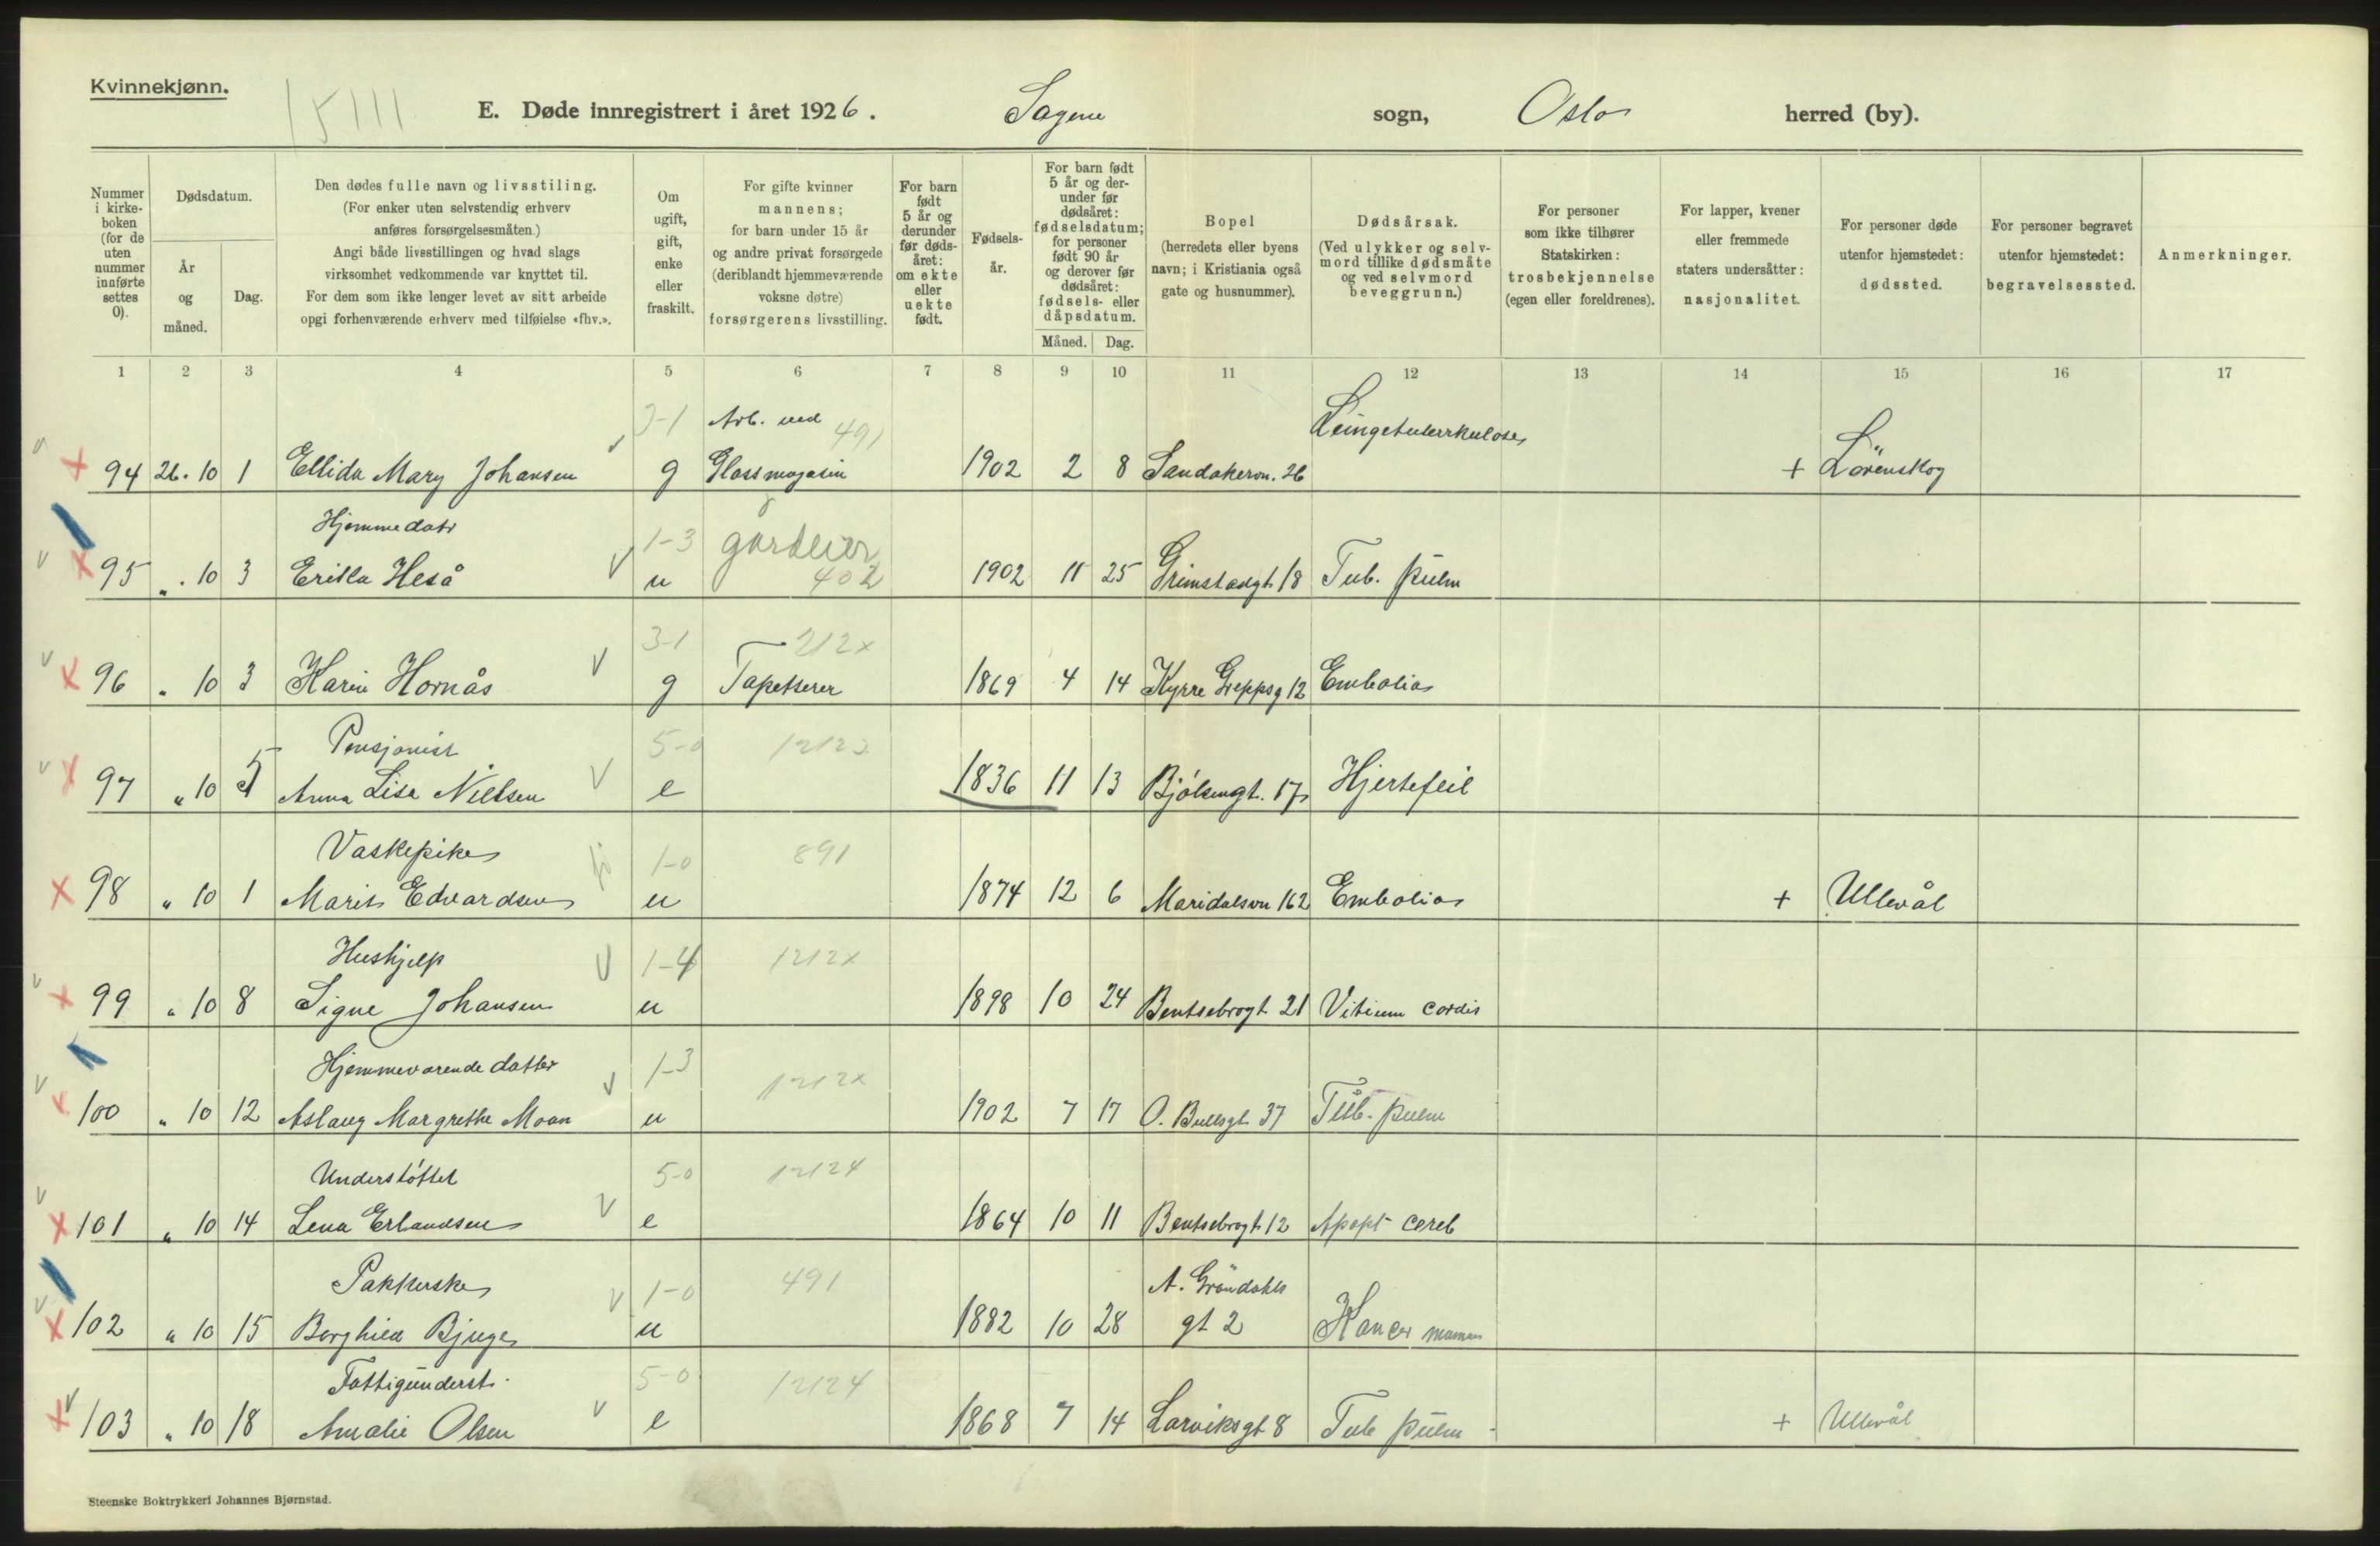 Kvinnekjønn.
15111
E. Døde innregistrert i året 1926. Sagene sogn, Oslo herred (by).
Nummer i kirke-boken (for de uten nummer innførte settes 0).
Dødsdatum.
År og måned.
Dag.
Den dødes fulle navn og livsstiling.
(For enker uten selvstendig erhverv
anføres forsørgelsesmåten.)
Angi både livsstillingen og hvad slags
virksomhet vedkommende var knyttet til.
For dem som ikke lenger levet av sitt arbeide
opgi forhenværende erhverv med tilføielse «fhv.».
Om ugift, gift, enke eller fraskilt.
For gifte kvinner
mannens;
for barn under 15 år
og andre privat forsørgede
(deriblandt hjemmeværende
voksne døtre)
forsørgerens livsstilling.
For barn født 5 år og derunder før døds-året: om ekte eller uekte født.
Fødsels-år.
For barn født
5 år og der-
under før
dødsåret:
fødselsdatum;
for personer
født 90 år
og derover før
dødsåret:
fødsels- eller
dåpsdatum.
Måned. Dag.
Bopel
(herredets eller byens
navn; i Kristiania også
gate og husnummer).
Dødsårsak.
(Ved ulykker og selv-
mord tillike dødsmåte
og ved selvmord
beveggrunn.)
For personer
som ikke tilhører
Statskirken:
trosbekjennelse
(egen eller foreldrenes).
For lapper, kvener
eller fremmede
staters undersåtter:
nasjonalitet.
For personer døde
utenfor hjemstedet:
dødssted.
For personer begravet
utenfor hjemstedet:
begravelsessted.
Anmerkninger.
1 2 3 4 5 6 7 8 9 10 11 12 13 14 15 16 17
Arb. ved 491 Lungetuberkulose
94 26. 10 1 Ellida Mary Johansen g Glassmagasin 1902 2 8 Sandakervn. 26 + Lörenskog
Hjemmedatr 1-3 gårdeier
95 „ . 10 3 Erikka Heså u 402 1902 11 25 Grimstadgt. 18 Tub. pulm
3-1 212x
96 „ 10 3 Karin Hornås g Tapetserer 1869 4 14 Kyrre Greppsg 12 Embolia
Pensjonist 5-0
97 „ 10 5 Anna Lisa Nielsen e 1836 11 13 Bjölsengt. 17 Hjertefeil
Vaskepike 1-0 891
98 „ 10 1 Marit Edvardsen u 1874 12 6 Maridalsvn 162 Embolia + Ullevål
Hushjelp 1-4 1212x
99 „ 10 8 Signe Johansen u 1898 10 24 Bentsebrogt 21 Vitium cordis
Hjemmeværende datter 1-3 1212x
100 „ 10 12 Aslaug Margrethe Moan u 1902 7 17 O. Bullsgt 37 Tub. pulm
Understöttet 5-0 12124
101 „ 10 14 Lena Erlandsen e 1864 10 11 Bentsebrogt. 12 Apopl cereb
Pakkerske 1-0 491 A. Gröndahls
102 „ 10 15 Borghild Bjuge u 1882 10 28 gt 2 Kancer mamm
Fattigunderst. 5-0 12124
103 „ 10 18 Amalie Olsen e 1868 7 14 Larviksgt 8 Tub pulm + Ullevål
Steenske Boktrykkeri Johannes Bjørnstad.